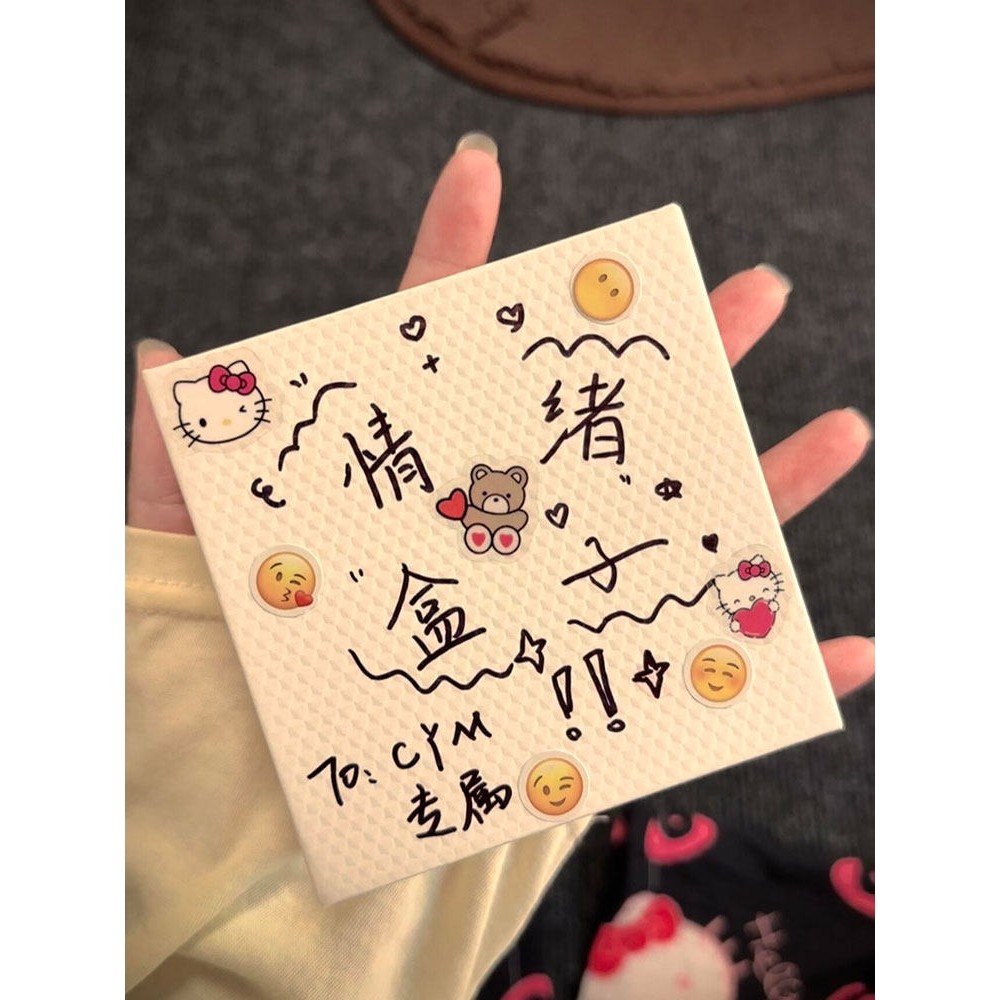 情绪
盒子
!!
To: CYM
专属